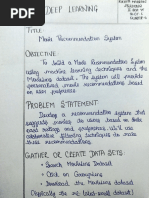 DEEP LEARNING
TITLE
Movie Recommendation System
OBJECTIVE
To build a Movie Recommendation System
using machine learning techniques and the
Movielens dataset. The system will provide
personalized movie recommendations based
on user preferences.
PROBLEM STATEMENT
Develop a recommendation system that
suggests movies to users based on their
past ratings and preferences, utilizing
the Movielens dataset.
GATHER OR CREATE DATA SETS
Search Movielens Dataset
Click on Grouplens
Download the Movielens Dataset
(Typically the ml-latest-small dataset)